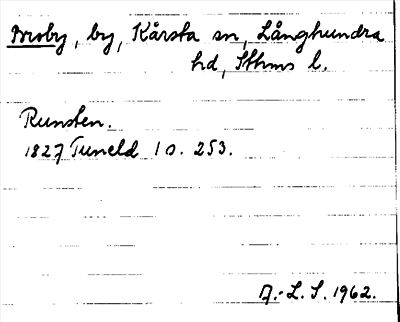 Broby, by, Kårsta sn, Långhundra
hd, Sthms l.
Runsten.
1827 Tuneld I s. 253.
D.-L. S. 1962.